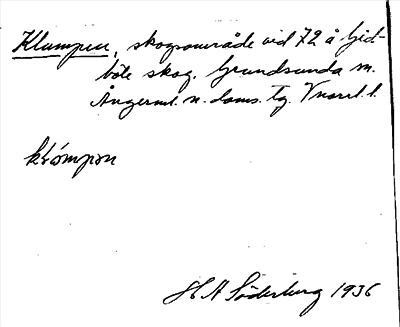 Klumpen, skogsområde vid 72 å Gid-
böle skog. Grundsunda sn.
Ångerml. n. doms. tg. Vnorrl. l.
klómpɘn
H A Söderberg 1936